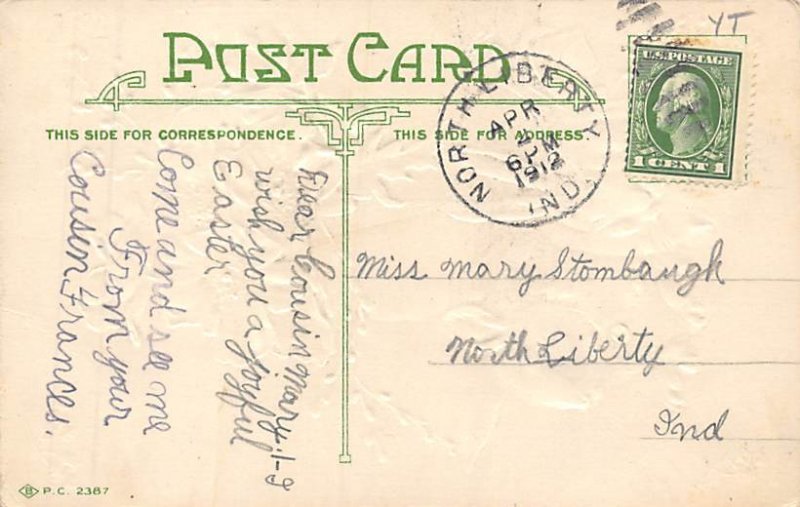 POST CARD
THIS SIDE FOR CORRESPONDENCE.
THIS SIDE FOR ADDRESS.
NORTH LIBERTY
APR
6 PM
1912
IND.
U.S. POSTAGE
1 CENT 1
YT
Dear Cousin Mary:-I
wish you a joyful
Easter
Come and see me
From your
Cousin Frances.
Miss Mary Stombaugh
North Liberty
Ind
B P.C. 2387